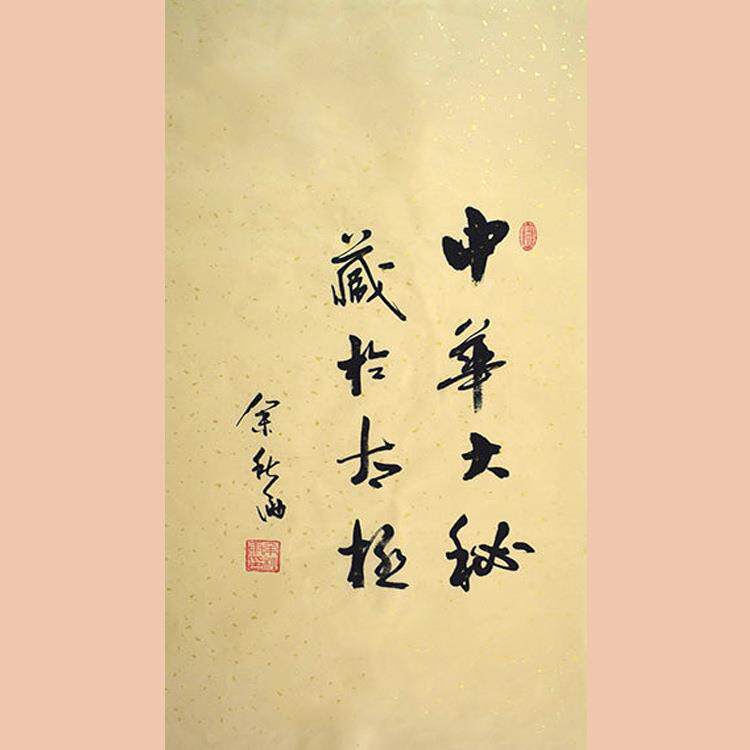 中華大秘
藏於太極
余秋雨